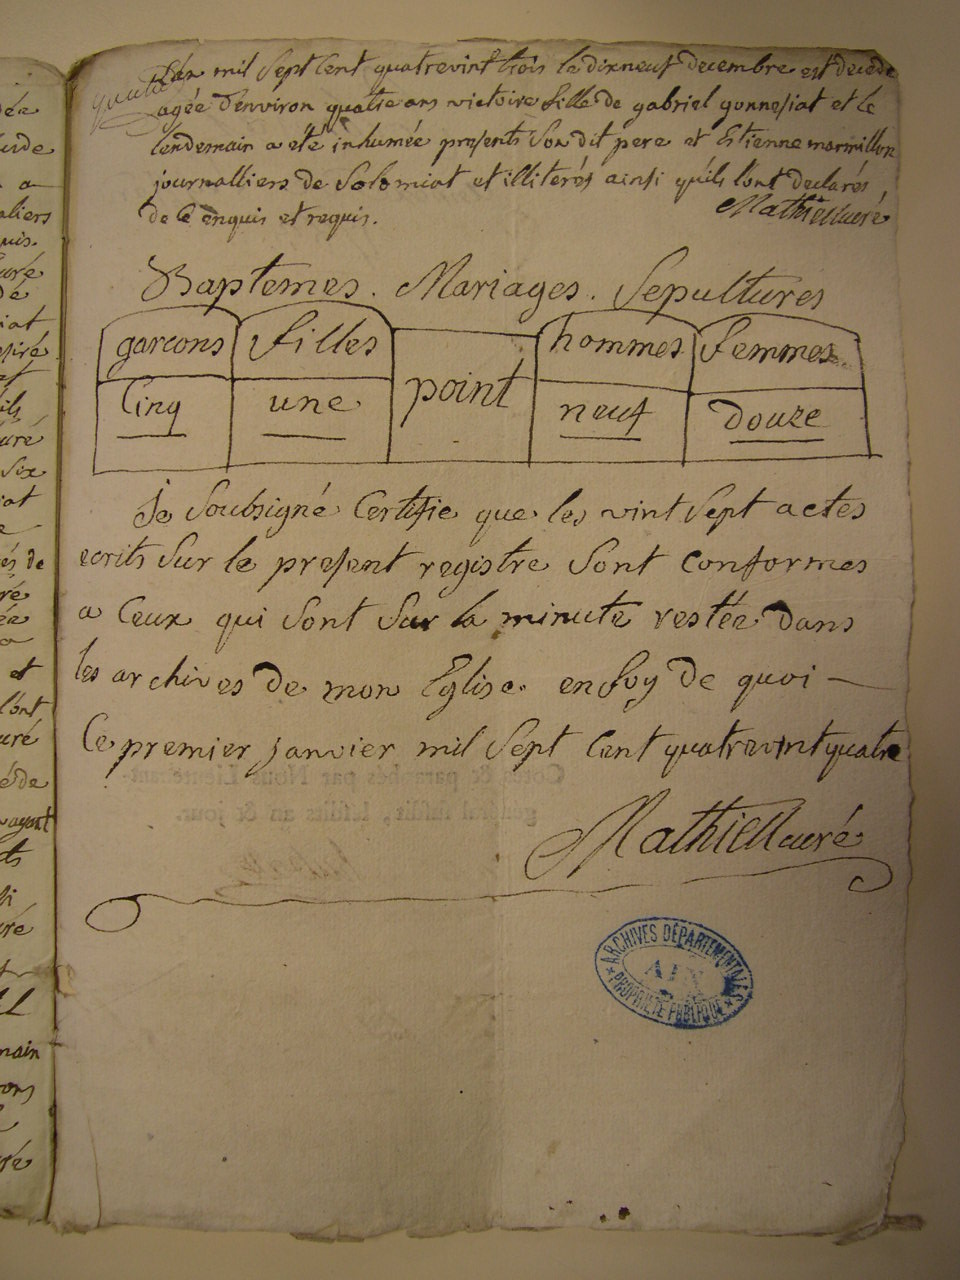 Lan mil Sept Cent quatrevint trois le dixneuf decembre est decede
agée d'environ quatre ans victoire fille de gabriel gonnesiat et le
lendemain a été inhumée presents Son dit pere et Etienne marmillon
journalliers de Solomiat et illiterés ainsi quils l'ont declarés
de ce enquis et requis. Mathieu curé
Baptemes. Mariages. Sepultures
garcons filles point hommes femmes
Cinq une neuf douze
Je Soubsigné Certifie que les vint Sept actes
ecrits Sur le present registre Sont conformes
a Ceux qui Sont Sur la minute restée dans
les archives de mon Eglise. en foy de quoi —
Ce premier janvier mil Sept Cent quatrevint quatre
Mathieu curé
ARCHIVES DÉPARTEMENTALES
AIN
PROPRIÉTÉ PUBLIQUE